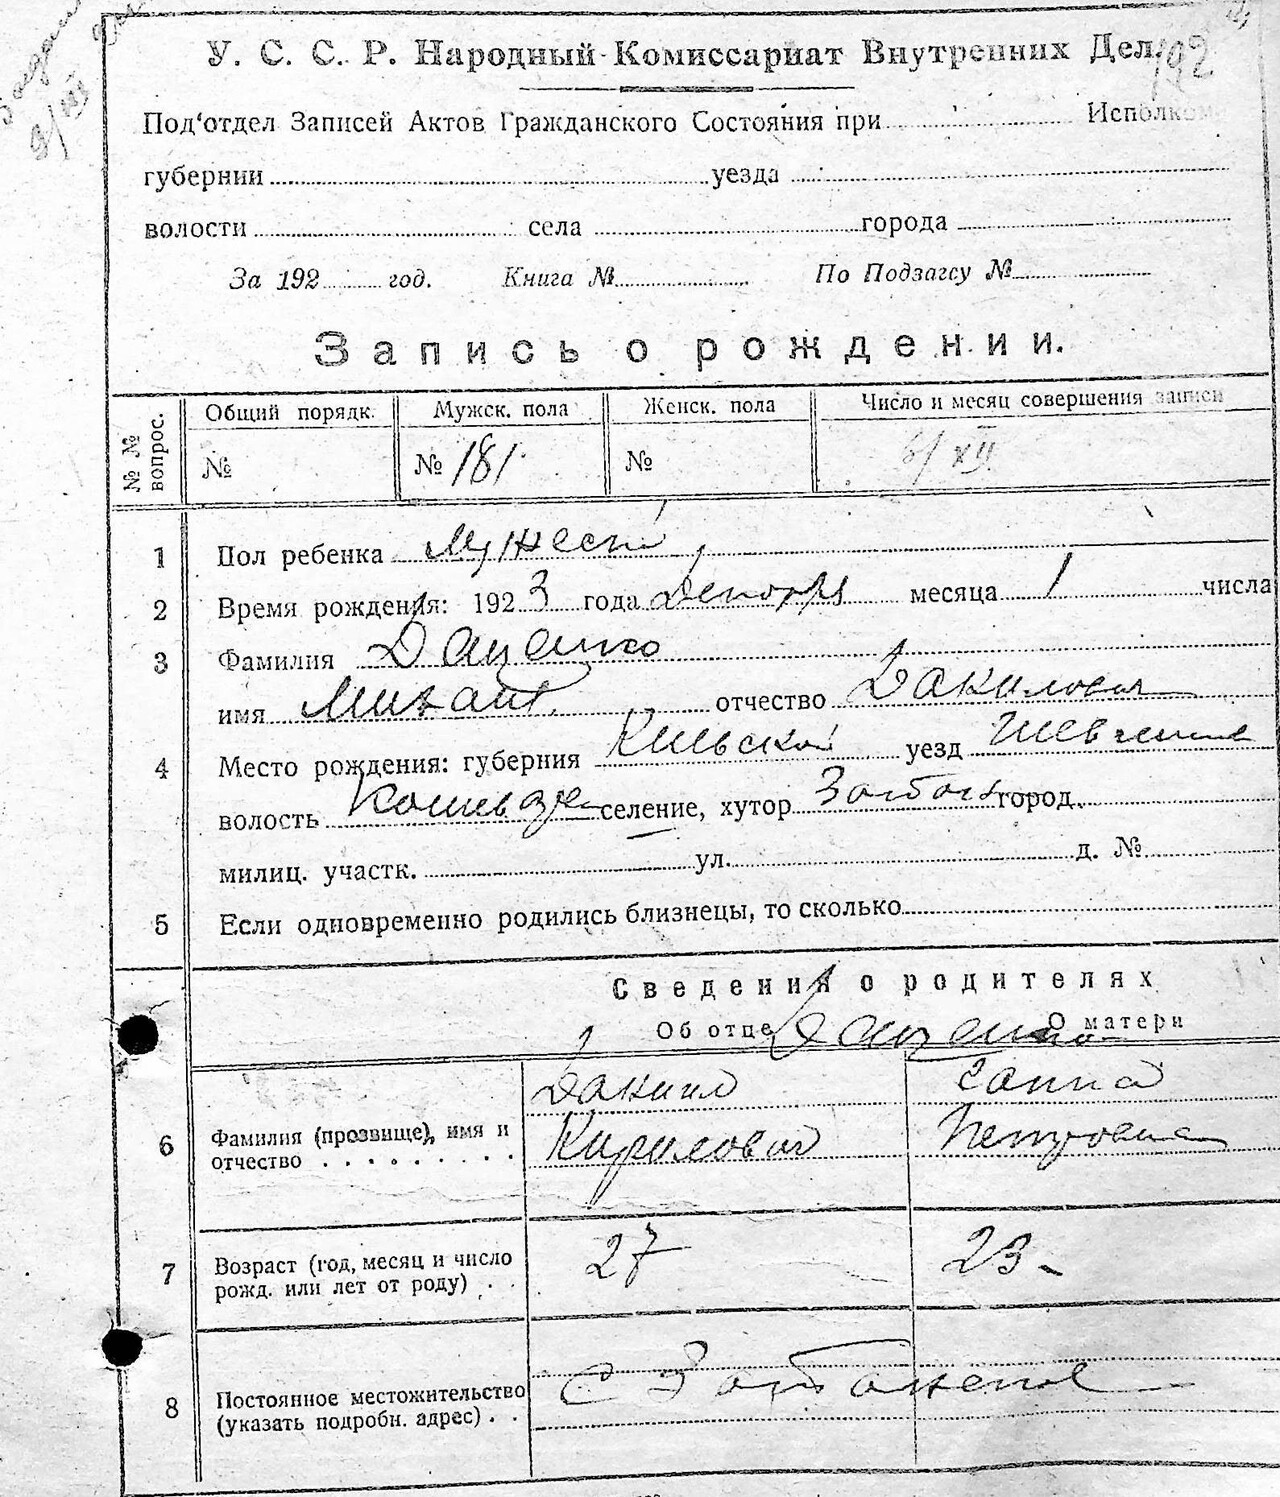 192
У. С. С. Р. Народный Комиссариат Внутренних Дел.
Под'отдел Записей Актов Гражданского Состояния при Исполком
губернии уезда
волости села города
За 192 год. Книга № По Подзагсу №
Запись о рождении.
№ № вопрос. Общий порядк. Мужск. пола Женск. пола Число и месяц совершения записи
№ № 181 № 6/XII
1 Пол ребенка Мужеск
2 Время рождения: 1923 года Декабря месяца 1 числа
3 Фамилия Даценко
имя Михаил отчество Данилович
4 Место рождения: губерния Киевской уезд Шевченк
волость селение, хутор город
милиц. участк. ул. д. №
5 Если одновременно родились близнецы, то сколько
Сведения о родителях
Об отце О матери
Даценко
Данил Ганна
6 Фамилия (прозвище), имя и отчество Кирилович Петровна
7 Возраст (год, месяц и число рожд. или лет от роду) 27 23
8 Постоянное местожительство (указать подробн. адрес) с